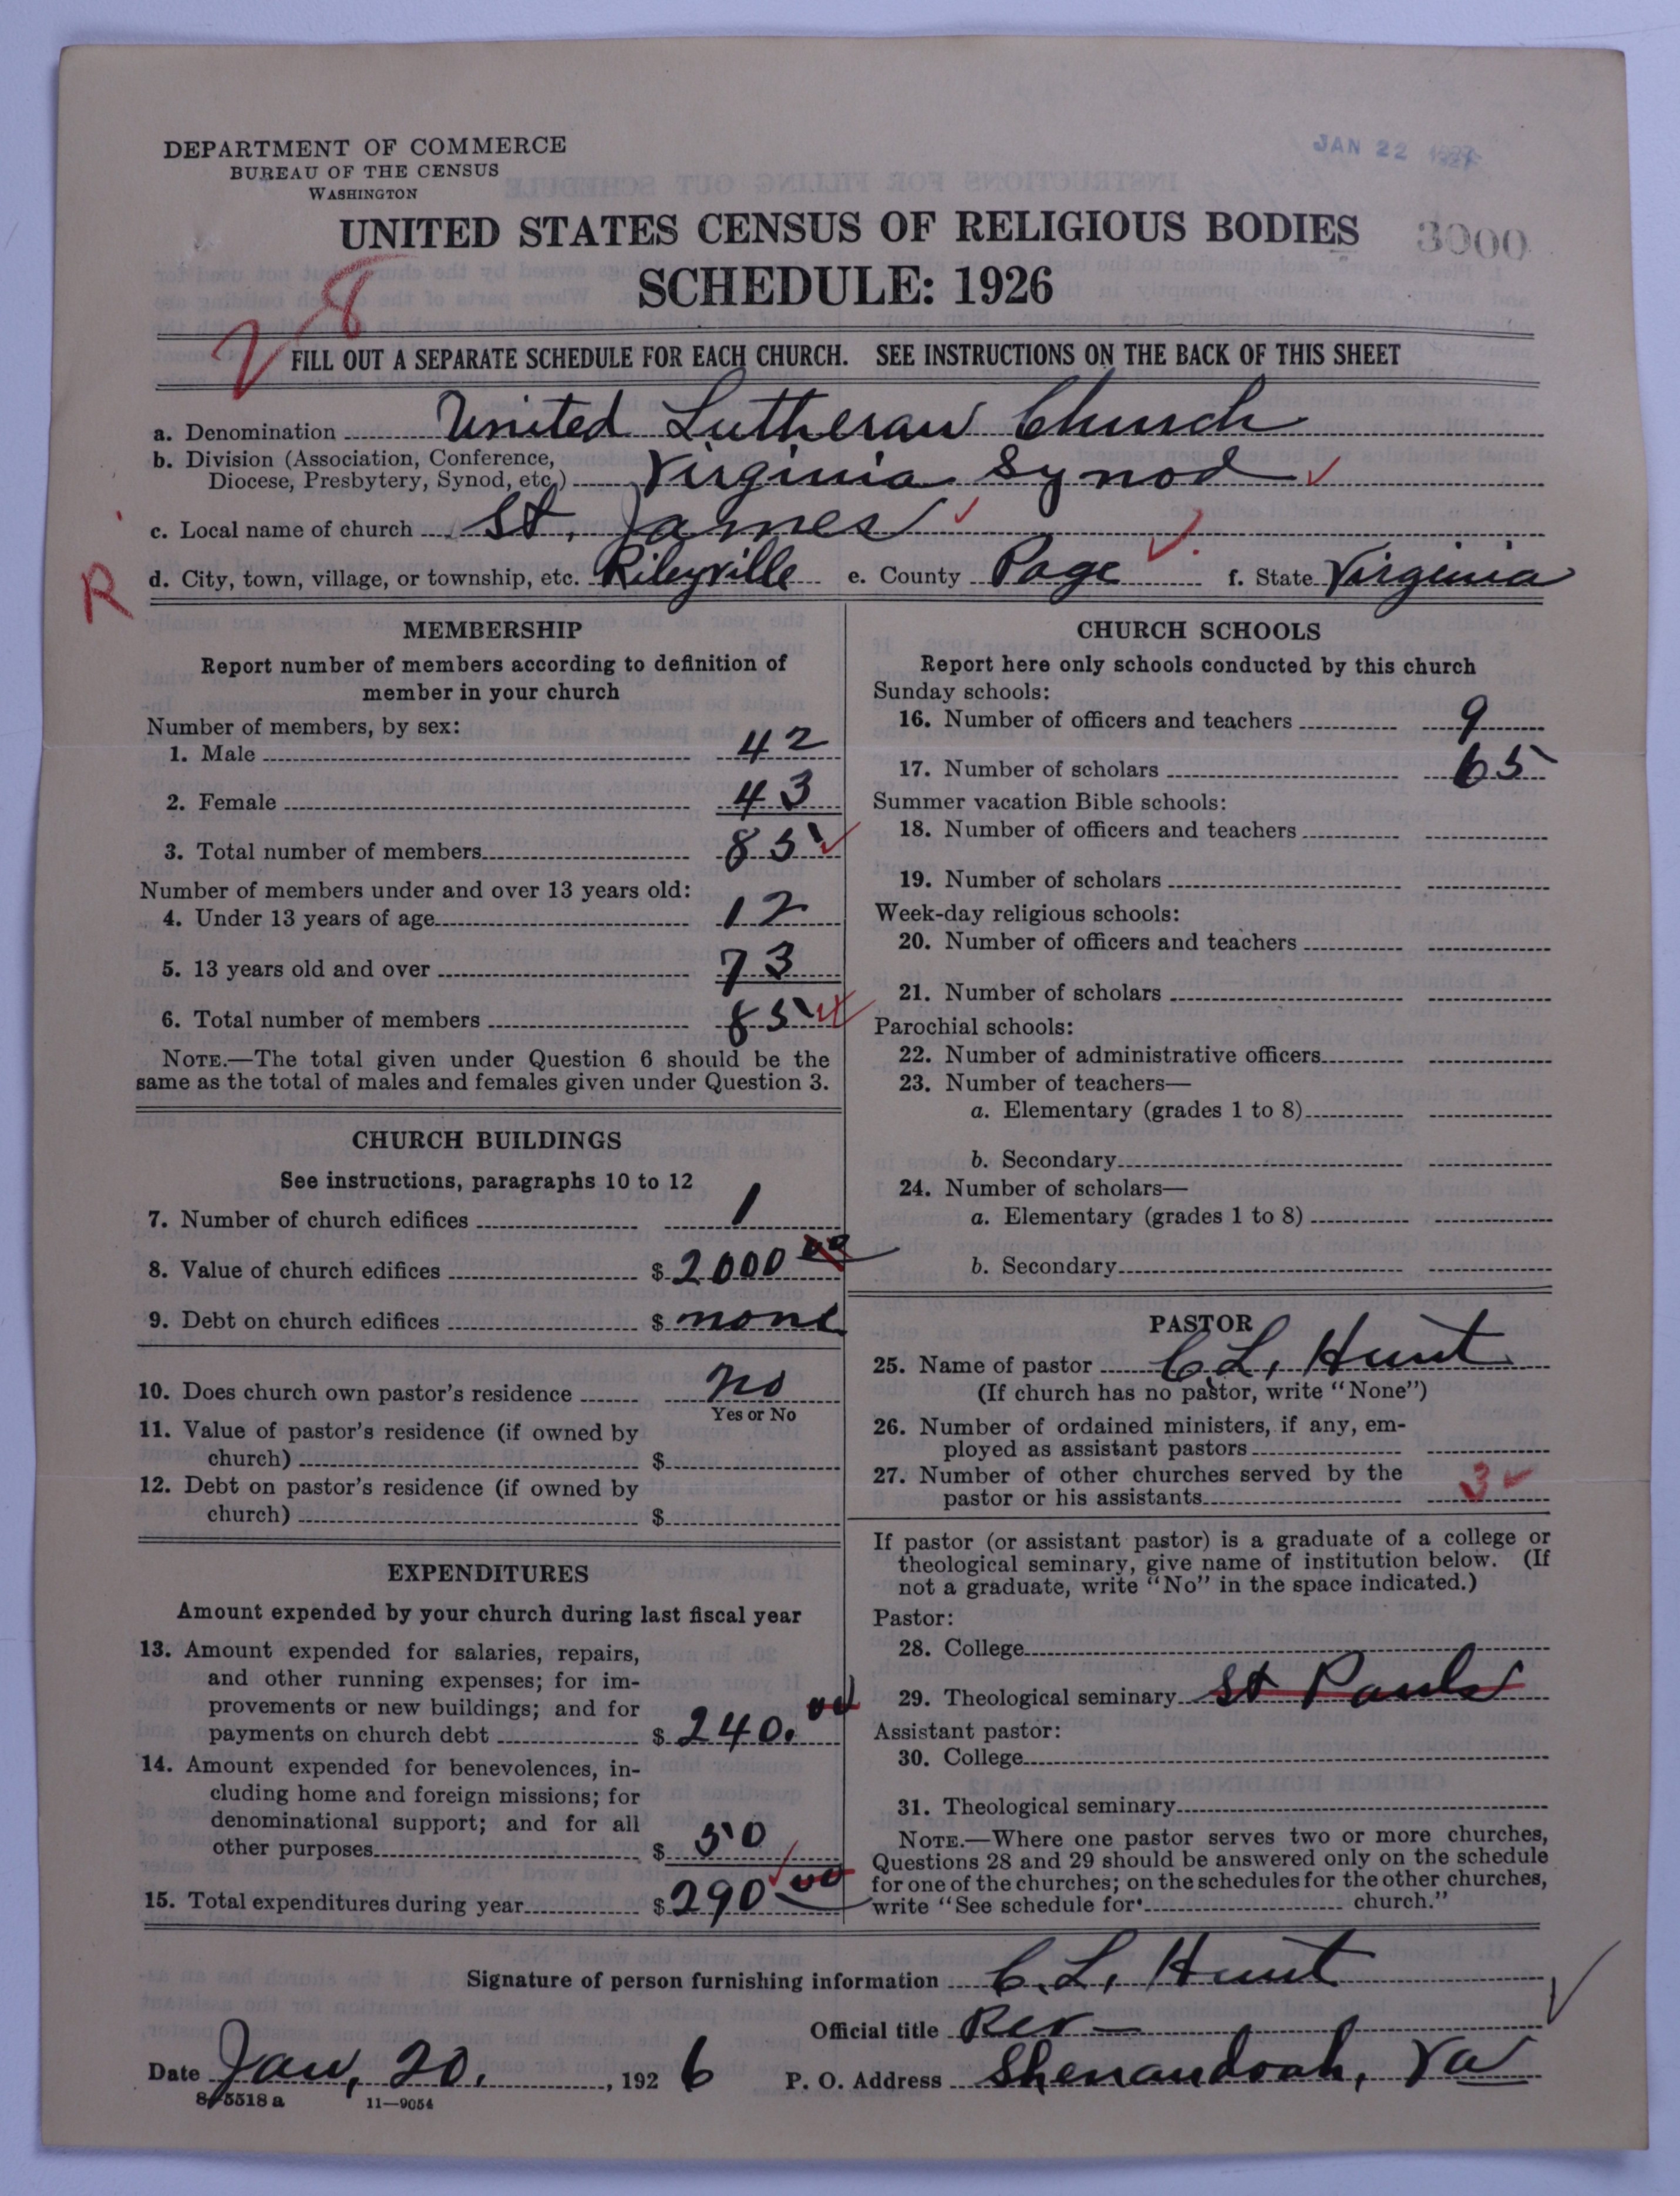 DEPARTMENT OF COMMERCE
BUREAU OF THE CENSUS
WASHINGTON
JAN 22
UNITED STATES CENSUS OF RELIGIOUS BODIES
3000
SCHEDULE: 1926
28
FILL OUT A SEPARATE SCHEDULE FOR EACH CHURCH. SEE INSTRUCTIONS ON THE BACK OF THIS SHEET
a. Denomination United Lutheran Church
b. Division (Association, Conference,
Diocese, Presbytery, Synod, etc.) Virginia Synod
c. Local name of church St. James
R
d. City, town, village, or township, etc. Rileyville e. County Page f. State Virginia
MEMBERSHIP
Report number of members according to definition of
member in your church
Number of members, by sex:
1. Male 42
2. Female 43
3. Total number of members 85
Number of members under and over 13 years old:
4. Under 13 years of age 12
5. 13 years old and over 73
6. Total number of members 85
NOTE.—The total given under Question 6 should be the
same as the total of males and females given under Question 3.
CHURCH BUILDINGS
See instructions, paragraphs 10 to 12
7. Number of church edifices 1
8. Value of church edifices $ 2000 00
9. Debt on church edifices $ none
10. Does church own pastor's residence no
Yes or No
11. Value of pastor's residence (if owned by
church) $
12. Debt on pastor's residence (if owned by
church) $
EXPENDITURES
Amount expended by your church during last fiscal year
13. Amount expended for salaries, repairs,
and other running expenses; for im-
provements or new buildings; and for
payments on church debt $ 240.00
14. Amount expended for benevolences, in-
cluding home and foreign missions; for
denominational support; and for all
other purposes $ 50
15. Total expenditures during year $ 290 00
CHURCH SCHOOLS
Report here only schools conducted by this church
Sunday schools:
16. Number of officers and teachers 9
17. Number of scholars 65
Summer vacation Bible schools:
18. Number of officers and teachers
19. Number of scholars
Week-day religious schools:
20. Number of officers and teachers
21. Number of scholars
Parochial schools:
22. Number of administrative officers
23. Number of teachers—
a. Elementary (grades 1 to 8)
b. Secondary
24. Number of scholars—
a. Elementary (grades 1 to 8)
b. Secondary
PASTOR
25. Name of pastor C. L. Hunt
(If church has no pastor, write "None")
26. Number of ordained ministers, if any, em-
ployed as assistant pastors
27. Number of other churches served by the
pastor or his assistants 3
If pastor (or assistant pastor) is a graduate of a college or
theological seminary, give name of institution below. (If
not a graduate, write "No" in the space indicated.)
Pastor:
28. College
29. Theological seminary St Pauls
Assistant pastor:
30. College
31. Theological seminary
NOTE.—Where one pastor serves two or more churches,
Questions 28 and 29 should be answered only on the schedule
for one of the churches; on the schedules for the other churches,
write "See schedule for church."
Signature of person furnishing information C. L. Hunt
Official title Rev
Date Jan. 20. , 1926 P. O. Address Shenandoah, Va
8-5518 a 11—9054